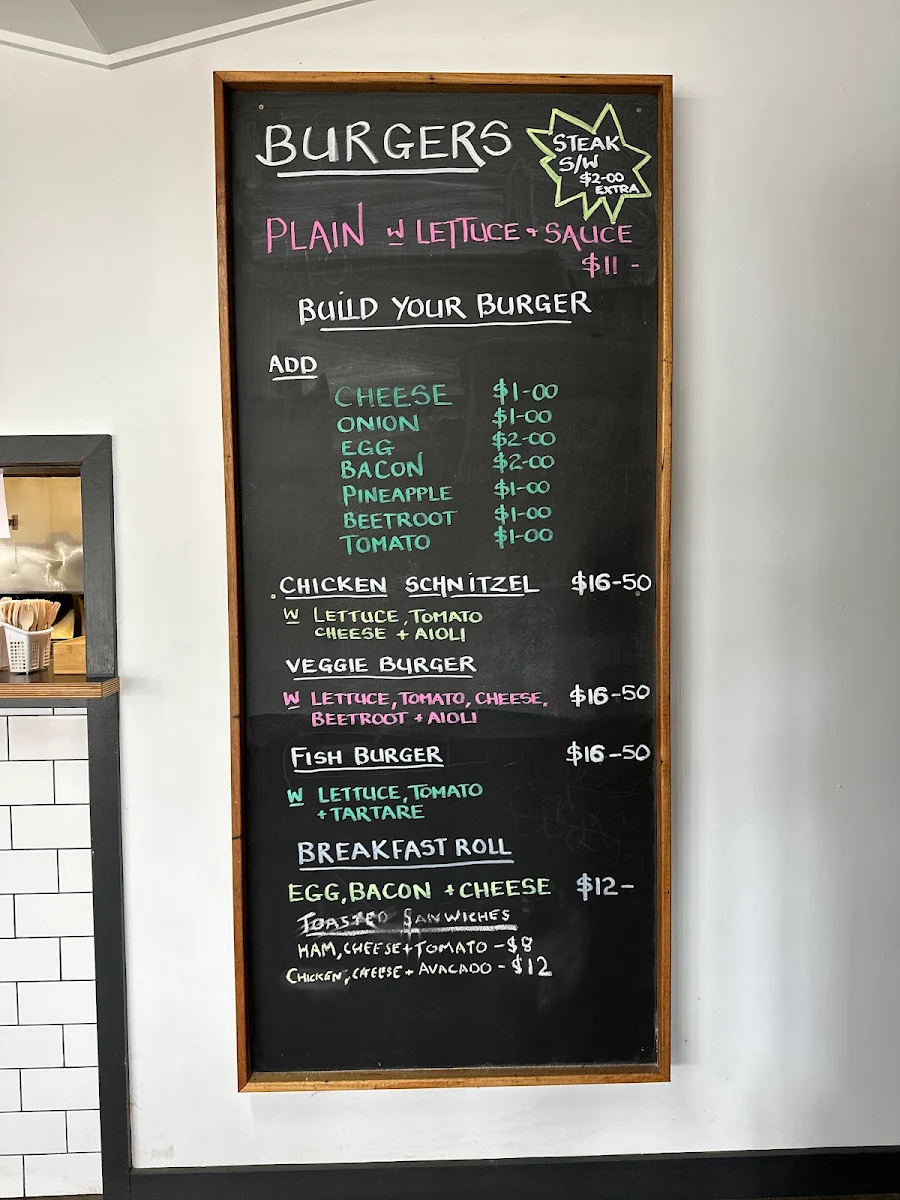 BURGERS
STEAK
S/W
$2-00
EXTRA
PLAIN W LETTUCE + SAUCE
$11 -
BUILD YOUR BURGER
ADD
CHEESE $1-00
ONION $1-00
EGG $2-00
BACON $2-00
PINEAPPLE $1-00
BEETROOT $1-00
TOMATO $1-00
CHICKEN SCHNITZEL $16-50
W LETTUCE, TOMATO
CHEESE + AIOLI
VEGGIE BURGER
W LETTUCE, TOMATO, CHEESE, $16-50
BEETROOT + AIOLI
FISH BURGER $16-50
W LETTUCE, TOMATO
+ TARTARE
BREAKFAST ROLL
EGG, BACON + CHEESE $12-
TOASTED SANWICHES
HAM, CHEESE + TOMATO - $8
CHICKEN, CHEESE + AVACADO - $12